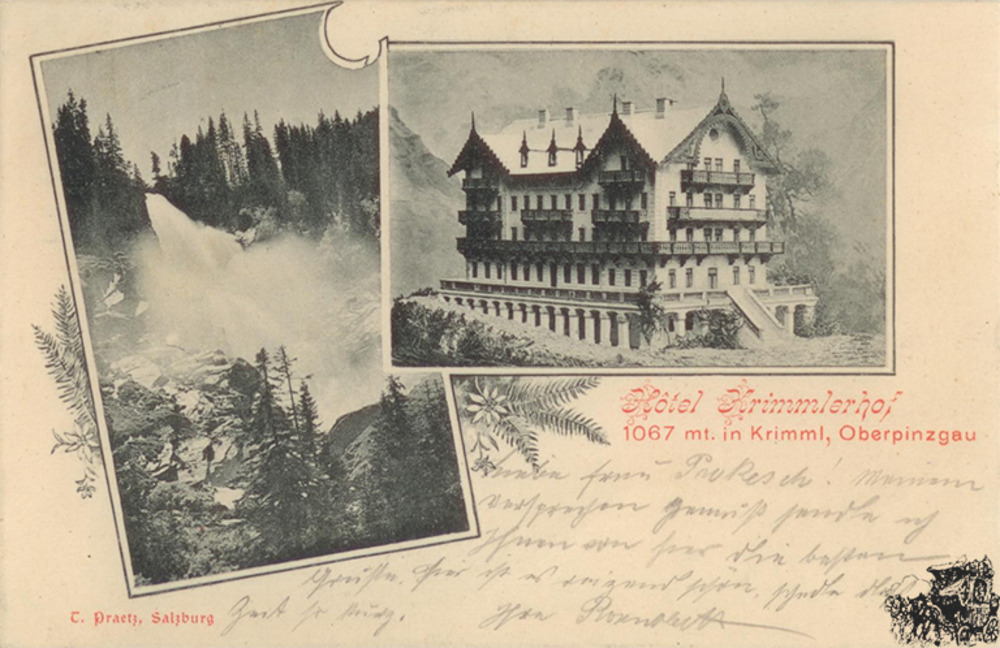 Hôtel Krimmlerhof
1067 mt. in Krimml, Oberpinzgau
Liebe Frau Prokesch! Meinem
Versprechen gemäß sende ich
Ihnen von hier die besten
Grüße. Hier ist es reizend schön, schade daß
Zeit so kurz.
Ihre
T. Praetz, Salzburg